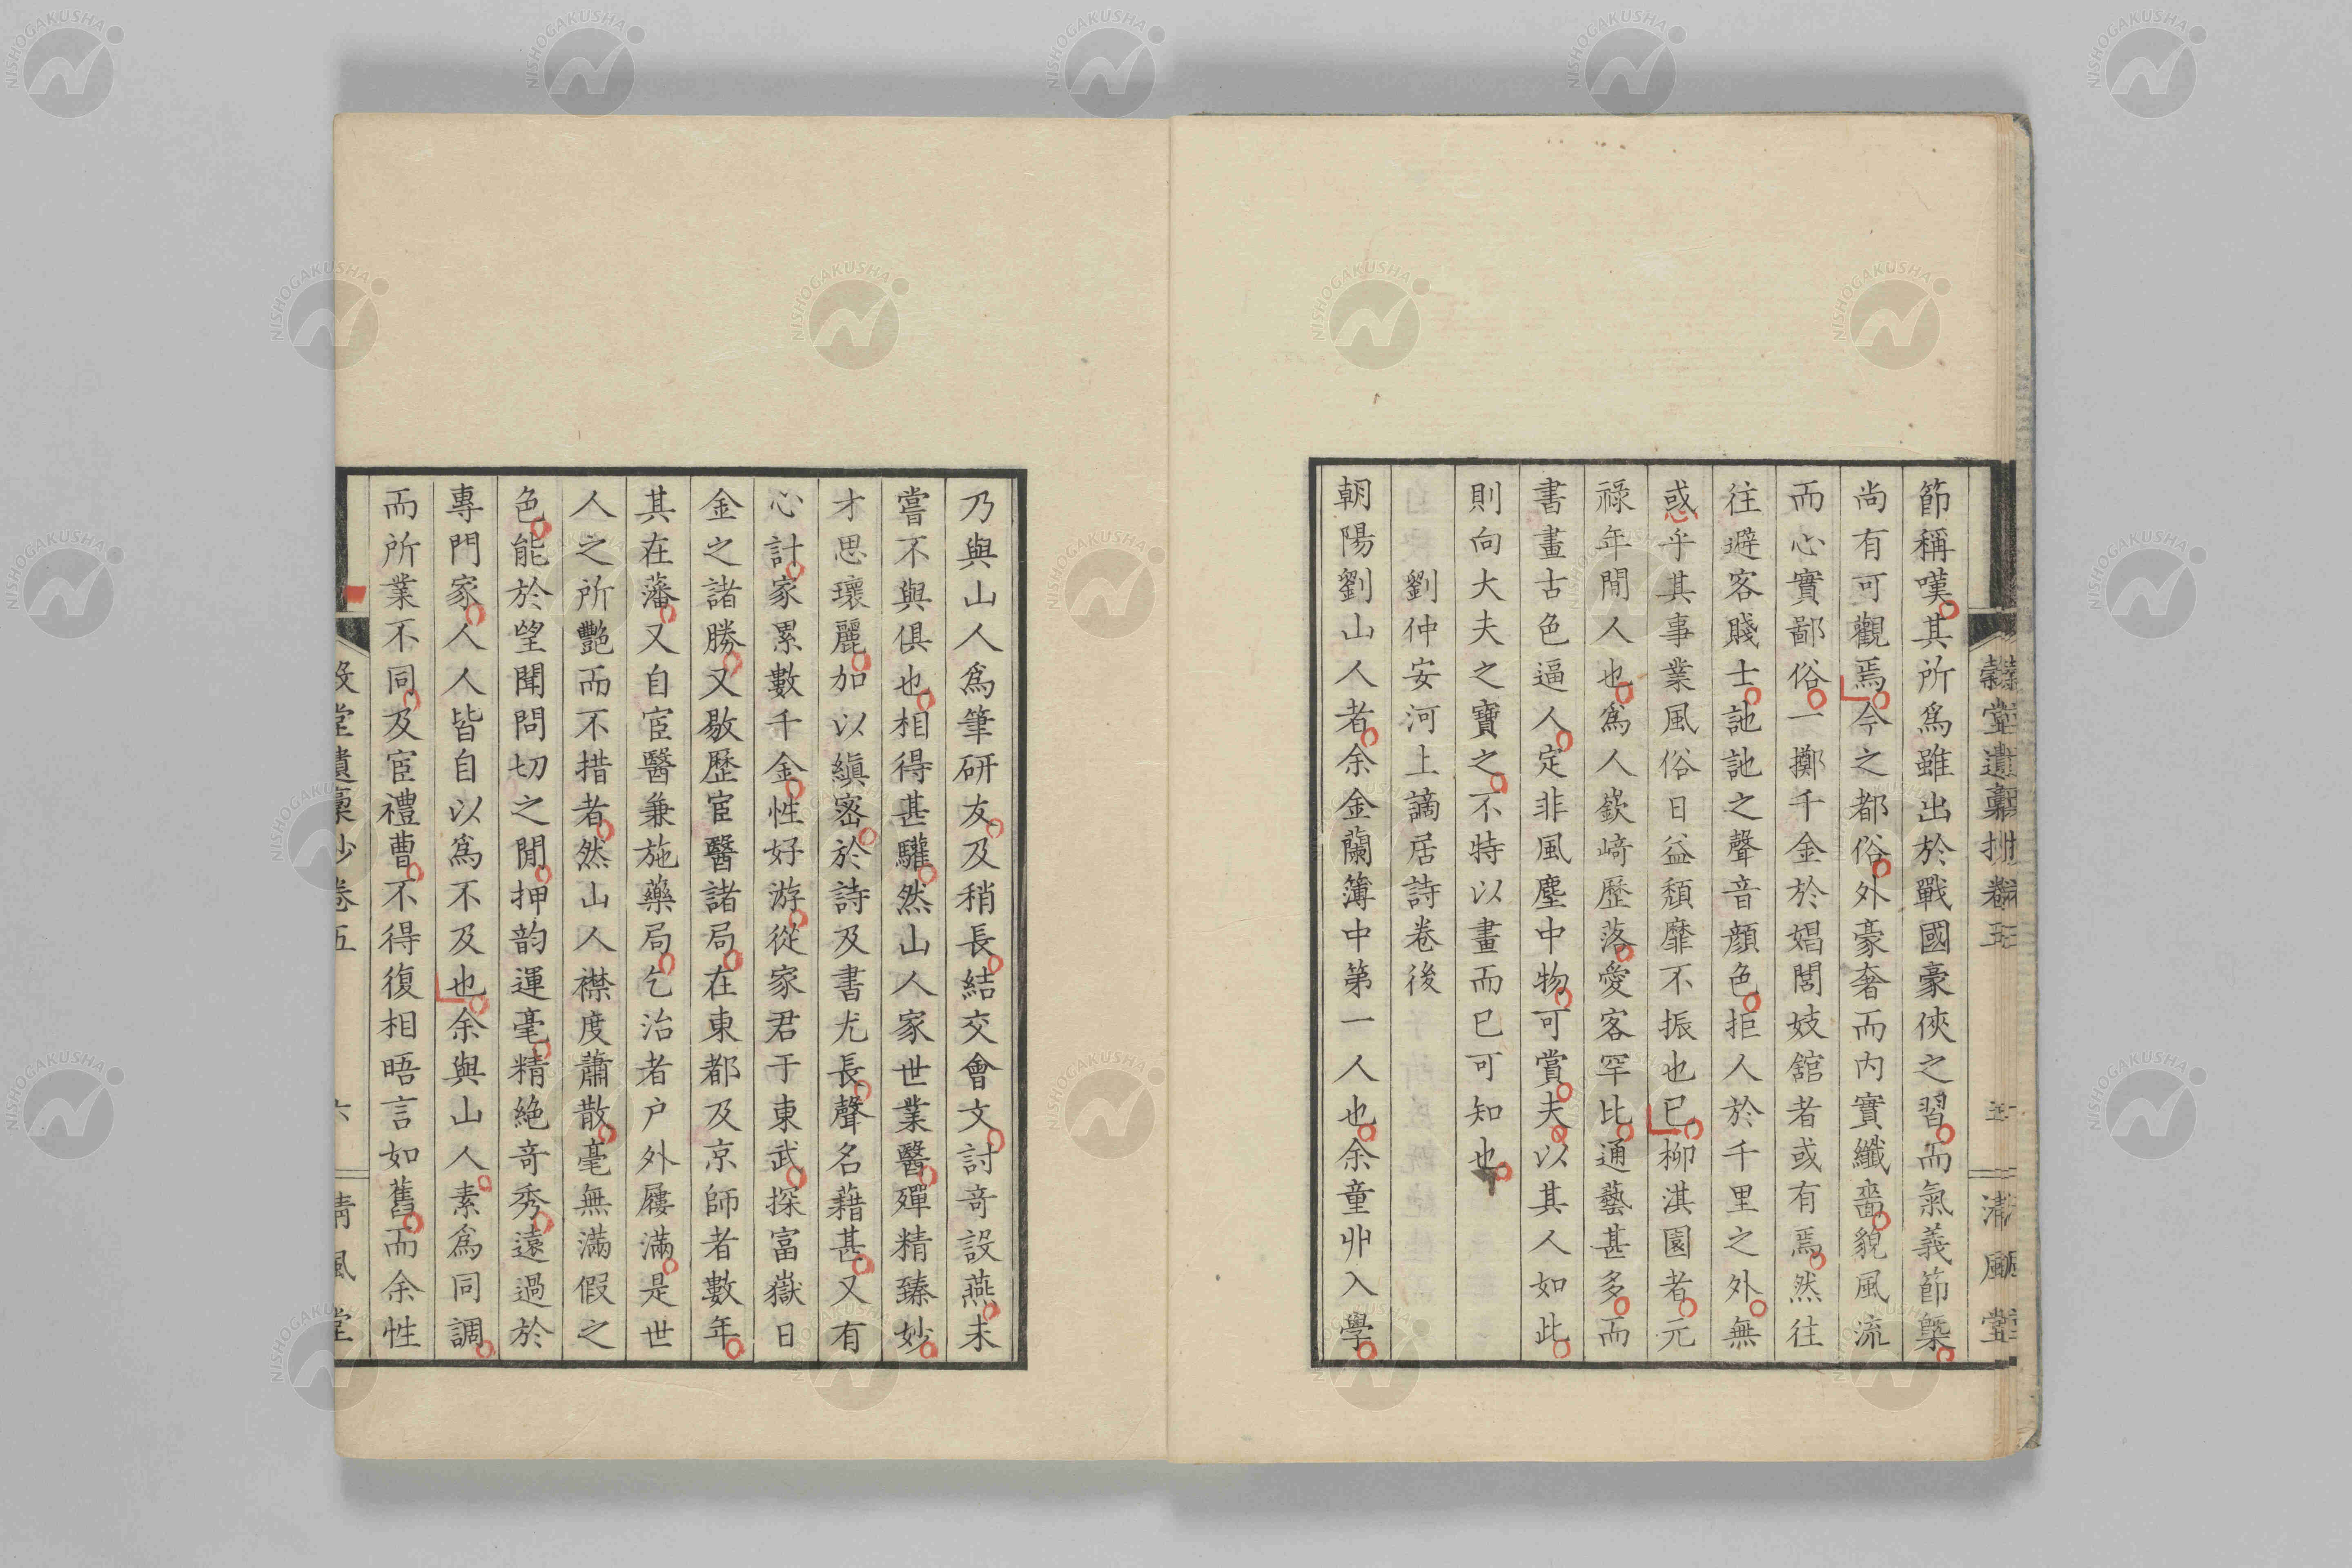 節稱嘆其所爲雖出於戰國豪俠之習而氣義節槩
尚有可觀焉今之都俗外豪奢而内實纖嗇貌風流
而心實鄙俗一擲千金於娼閭妓舘者或有焉然往
往避客賤士訑訑之聲音顔色拒人於千里之外無
惑乎其事業風俗日益頽靡不振也已柳淇園者元
祿年間人也爲人嶔﨑歷落愛客罕比通藝甚多而
書畫古色逼人定非風塵中物可賞夫以其人如此
則向大夫之寶之不特以畫而已可知也
劉仲安河上謫居詩卷後
朝陽劉山人者余金蘭簿中第一人也余童丱入學
乃與山人爲筆研友及稍長結交會文討竒設燕未
嘗不與俱也相得甚驩然山人家世業醫殫精臻妙
才思瓌麗加以縝宻於詩及書尤長聲名藉甚又有
心計家累數千金性好游從家君于東武探富嶽日
金之諸勝又敭歷宦醫諸局在東都及京師者數年
其在藩又自宦醫兼施藥局乞治者户外屨滿是世
人之所艷而不措者然山人襟度蕭散毫無滿假之
色能於望聞問切之間押韵運毫精絶竒秀遠過於
專門家人人皆自以爲不及也余與山人素爲同調
而所業不同及宦禮曹不得復相晤言如舊而余性
堂遺稾抄卷五
六
清風堂
NISHOGAKUSHA